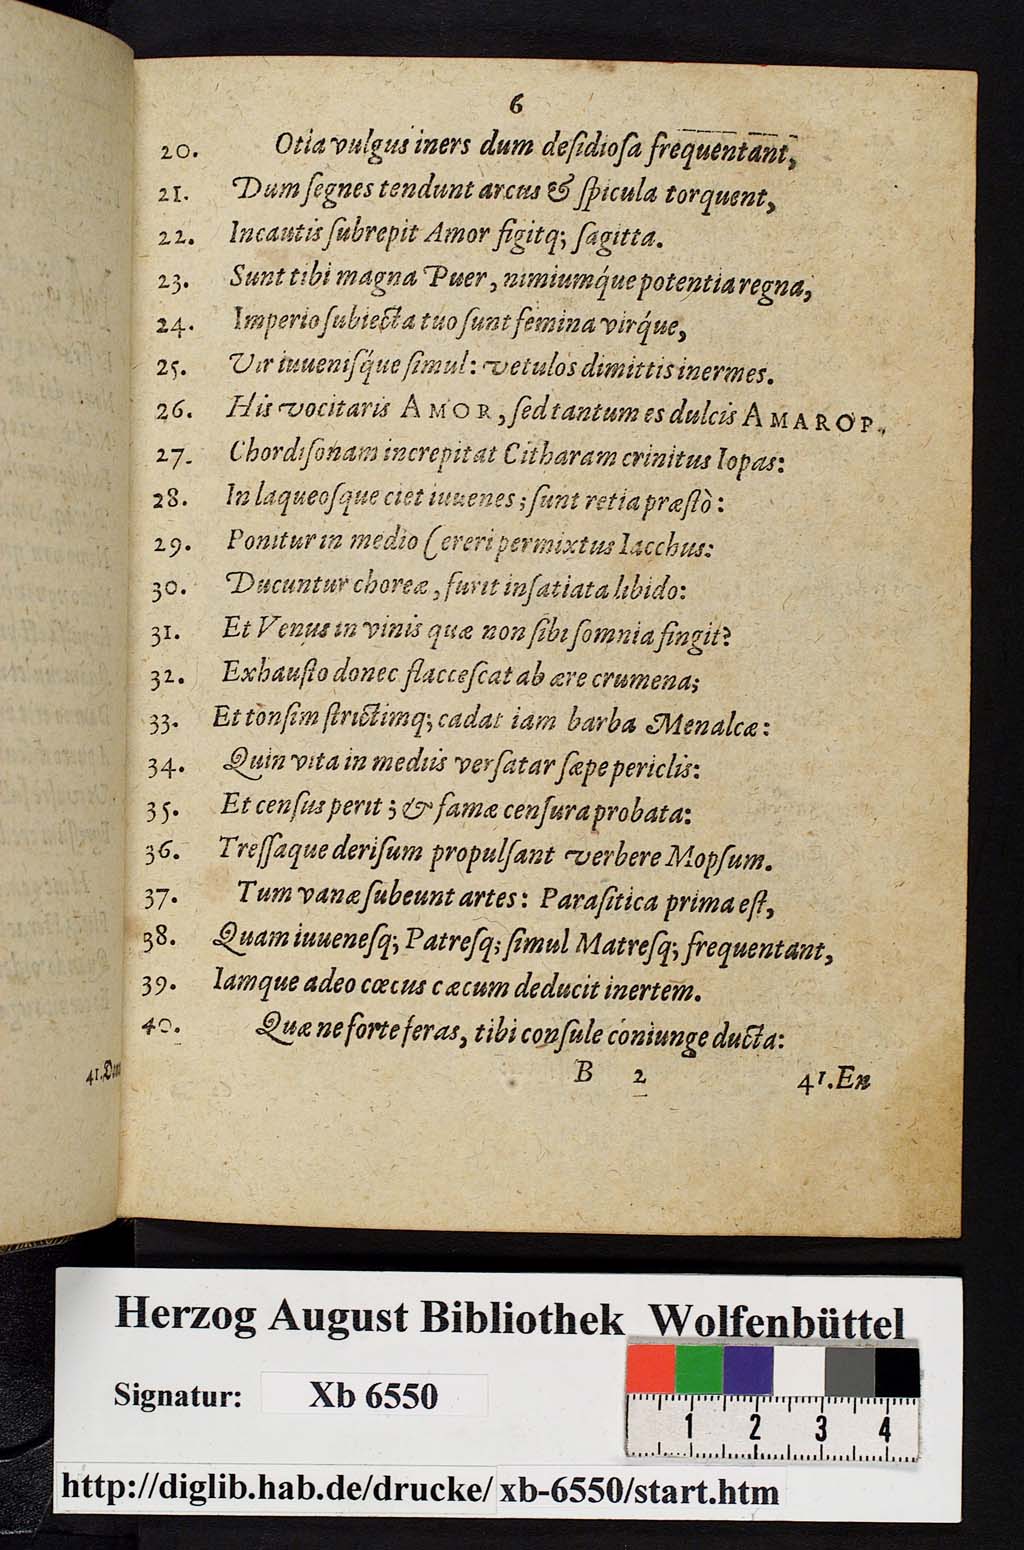 6
20. Otia vulgus iners dum deſidioſa frequentant,
21. Dum ſegnes tendunt arcus & ſpicula torquent,
22. Incautis ſubrepit Amor figitq; ſagitta.
23. Sunt tibi magna Puer, nimiumq́ue potentia regna,
24. Imperio ſubiecta tuo ſunt femina virq́ue,
25. Vir iuueniſq́ue ſimul: vetulos dimittis inermes.
26. His vocitaris AMOR, ſed tantum es dulcis AMAROP.,
27. Chordiſonam increpitat Citharam crinitus Iopas:
28. In laqueoſque ciet iuuenes; ſunt retia præſtò:
29. Ponitur in medio Cereri permixtus Iacchus:
30. Ducuntur choreæ, furit inſatiata libido:
31. Et Venus in vinis quæ non ſibi ſomnia fingit?
32. Exhauſto donec flacceſcat ab ære crumena;
33. Et tonſim ſtrictimq; cadat iam barba Menalcæ:
34. Quin vita in mediis verſatar ſæpe periclis:
35. Et cenſus perit; & famæ cenſura probata:
36. Treſſaque deriſum propulſant verbere Mopſum.
37. Tum vanæ ſubeunt artes: Paraſitica prima eſt,
38. Quam iuueneſq; Patreſq; ſimul Matreſq; frequentant,
39. Iamque adeo cœcus cæcum deducit inertem.
40. Quæ ne forte feras, tibi conſule coniunge ducta:
B 2 41. En
41.
Herzog August Bibliothek Wolfenbüttel
Signatur: Xb 6550
1 2 3 4
http://diglib.hab.de/drucke/xb-6550/start.htm